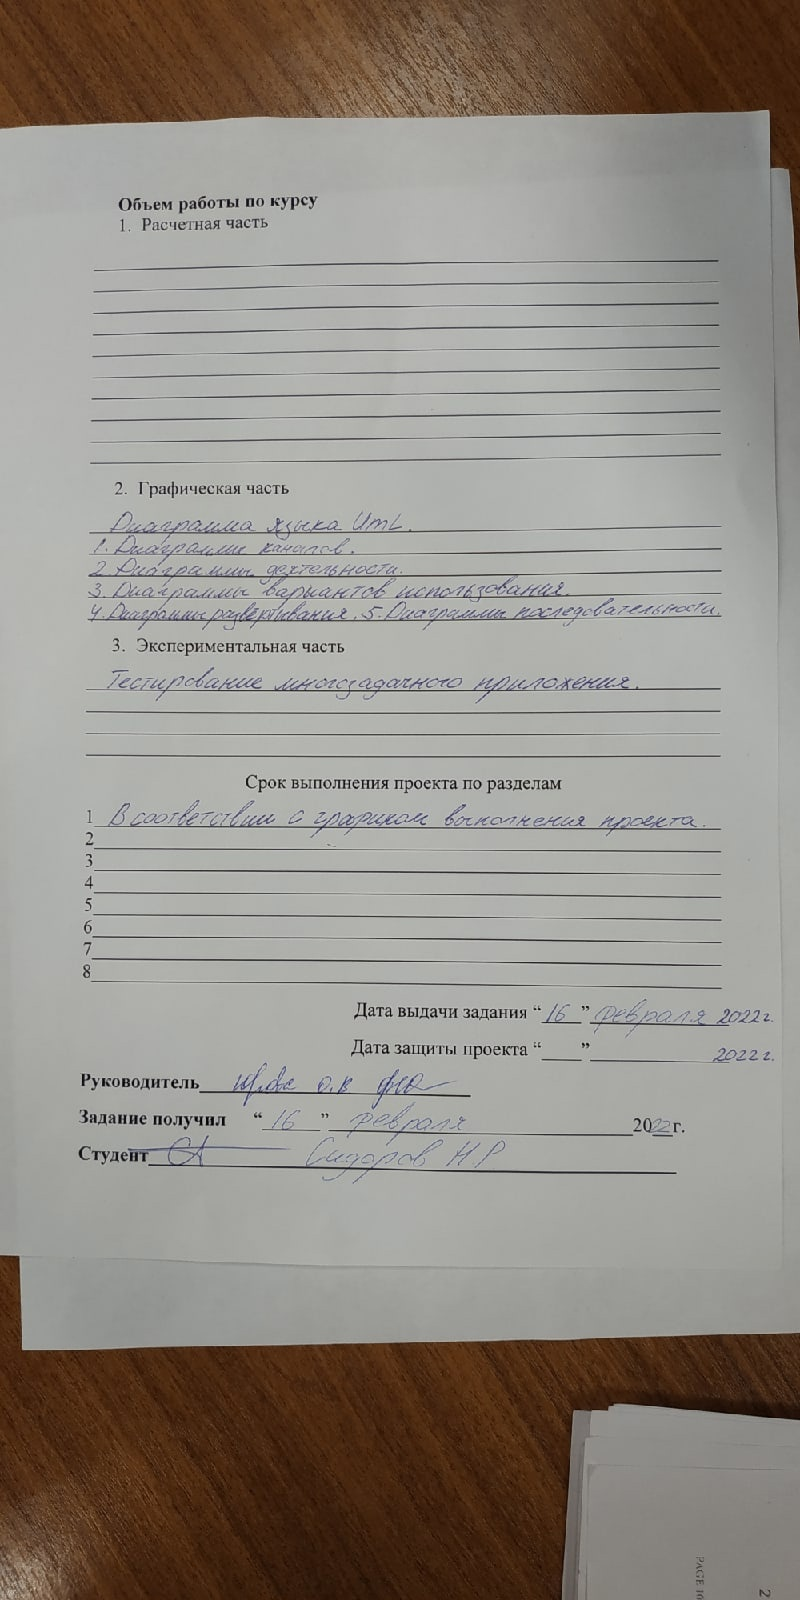 Объем работы по курсу
1. Расчетная часть
2. Графическая часть
Диаграмма языка UML.
1. Диаграммы
2. Диаграммы деятельности.
3. Диаграммы вариантов использования.
4. Диаграммы развёртывания. 5. Диаграммы последовательности.
3. Экспериментальная часть
Тестирование многозадачного приложения.
Срок выполнения проекта по разделам
1 В соответствии с графиком выполнения проекта.
2
3
4
5
6
7
8
Дата выдачи задания “16” февраля 2022 г.
Дата защиты проекта “ ” 2022 г.
Руководитель
Задание получил “16” февраля 2022 г.
Студент Сидоров Н.Р
PAGE 10
2